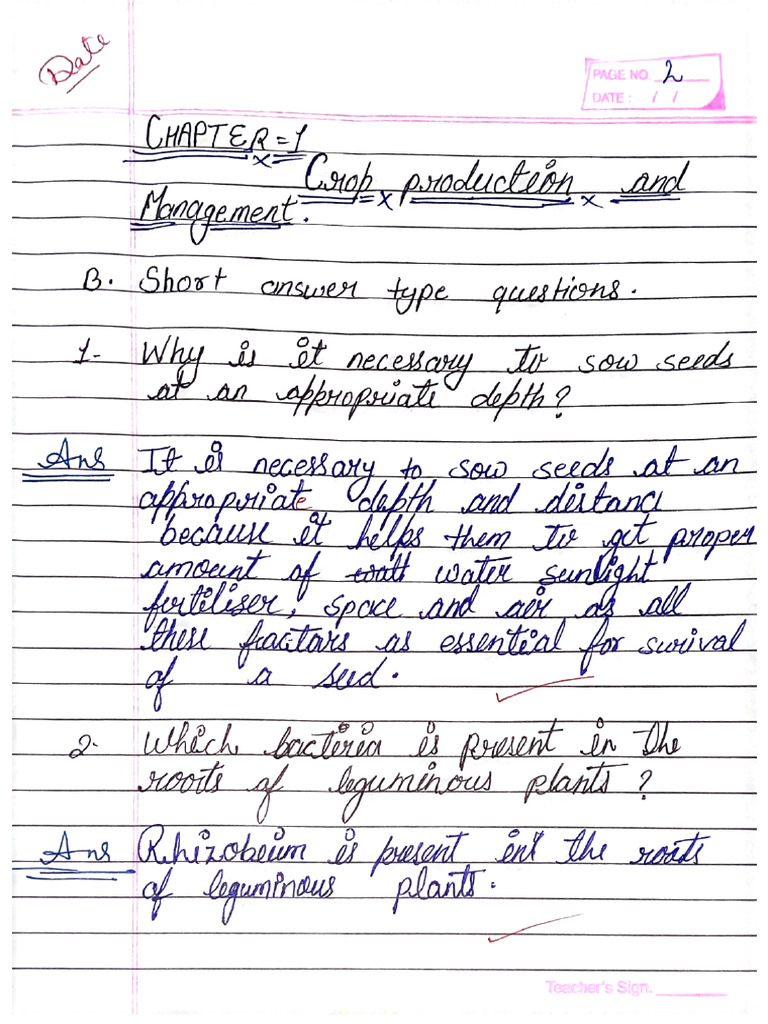 Date
PAGE NO. 2
DATE: / /
CHAPTER=1
Crop production and
Management.
B. Short answer type questions.
1- Why is it necessary to sow seeds
at an appropriate depth?
Ans It is necessary to sow seeds at an
appropriate depth and distanc
because it helps them to get proper
amount of watt water sunlight
fertiliser, space and air as all
these fractars as essential for surival
of a seed.
2- Which bacteria is present in the
roots of leguminous plants?
Ans Rhizobeium is present in the roots
of leguminous plants.
Teacher's Sign.